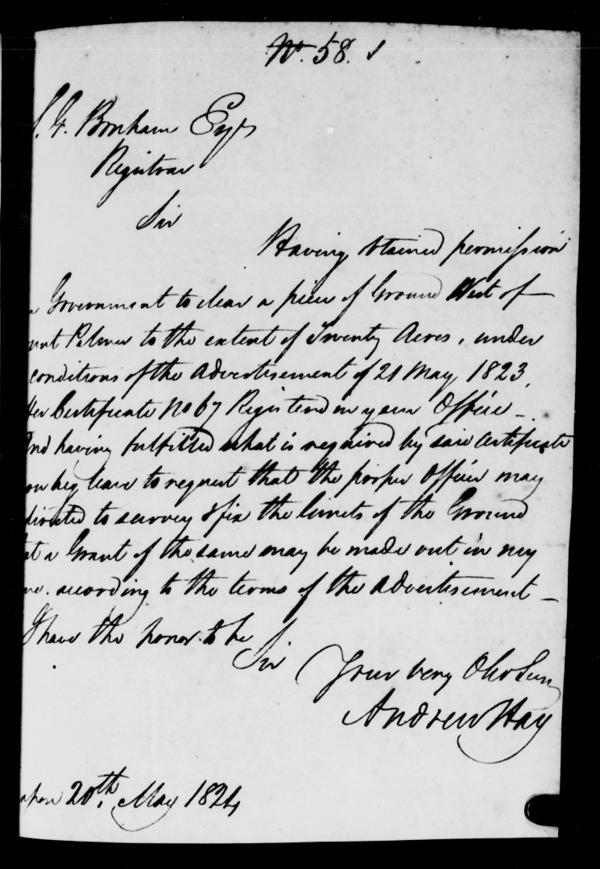 No. 58.
S. G. Bonham Esqr
Registrar
Sir
Having obtained permission
Government to clear a piece of Ground West of
Palmer to the extent of Twenty Acres, under
conditions of the Advertisement of 21 May, 1823,
Certificate No 67 Registered in your Office _
And having fulfilled what is required by said Certificate
now beg leave to request that the proper Officer may
directed to survey & fix the limits of the Ground
a Grant of the same may be made out in my
according to the terms of the Advertisement _
I have the honor to be
Sir
Your very Obt Serv
Andrew Hay
20th May 1824